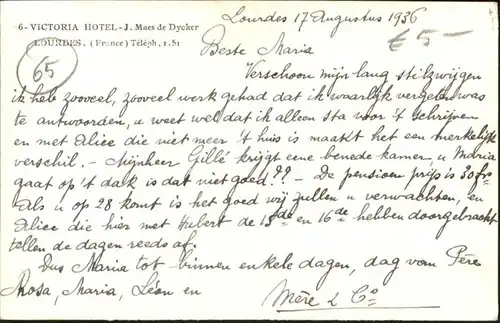 6 - VICTORIA HOTEL - J. Maes de Dycker
LOURDES. (France) Téléph, 1.51
65
Lourdes 17 Augustus 1936
€ 5-
Beste Maria
Verschoon mijn lang stilzwijgen
ik heb zooveel, zooveel werk gehad dat ik waarlijk vergeten was
te antwoorden, u weet wel dat ik alleen sta voor 't schrijven
en met Alice die niet meer 't huis is maakt het een merkelijk
verschil. - Mijnheer Gille krijgt eene benede kamer, u Maria
gaat op 't dak is dat niet goed?? - De pension prijs is 30 frs
Als u op 28 komt is het goed wij zullen u verwachten, en
Alice die hier met Hubert de 15de en 16de hebben doorgebracht
tellen de dagen reeds af.
Dus Maria tot binnen enkele dagen, dag vom Père
Rosa, Maria, Léon en Mère & Co